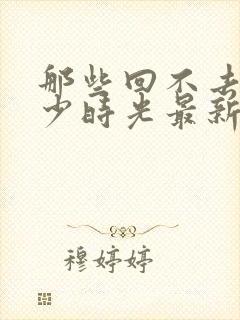 那些回不去
少时光最新
穆婷婷